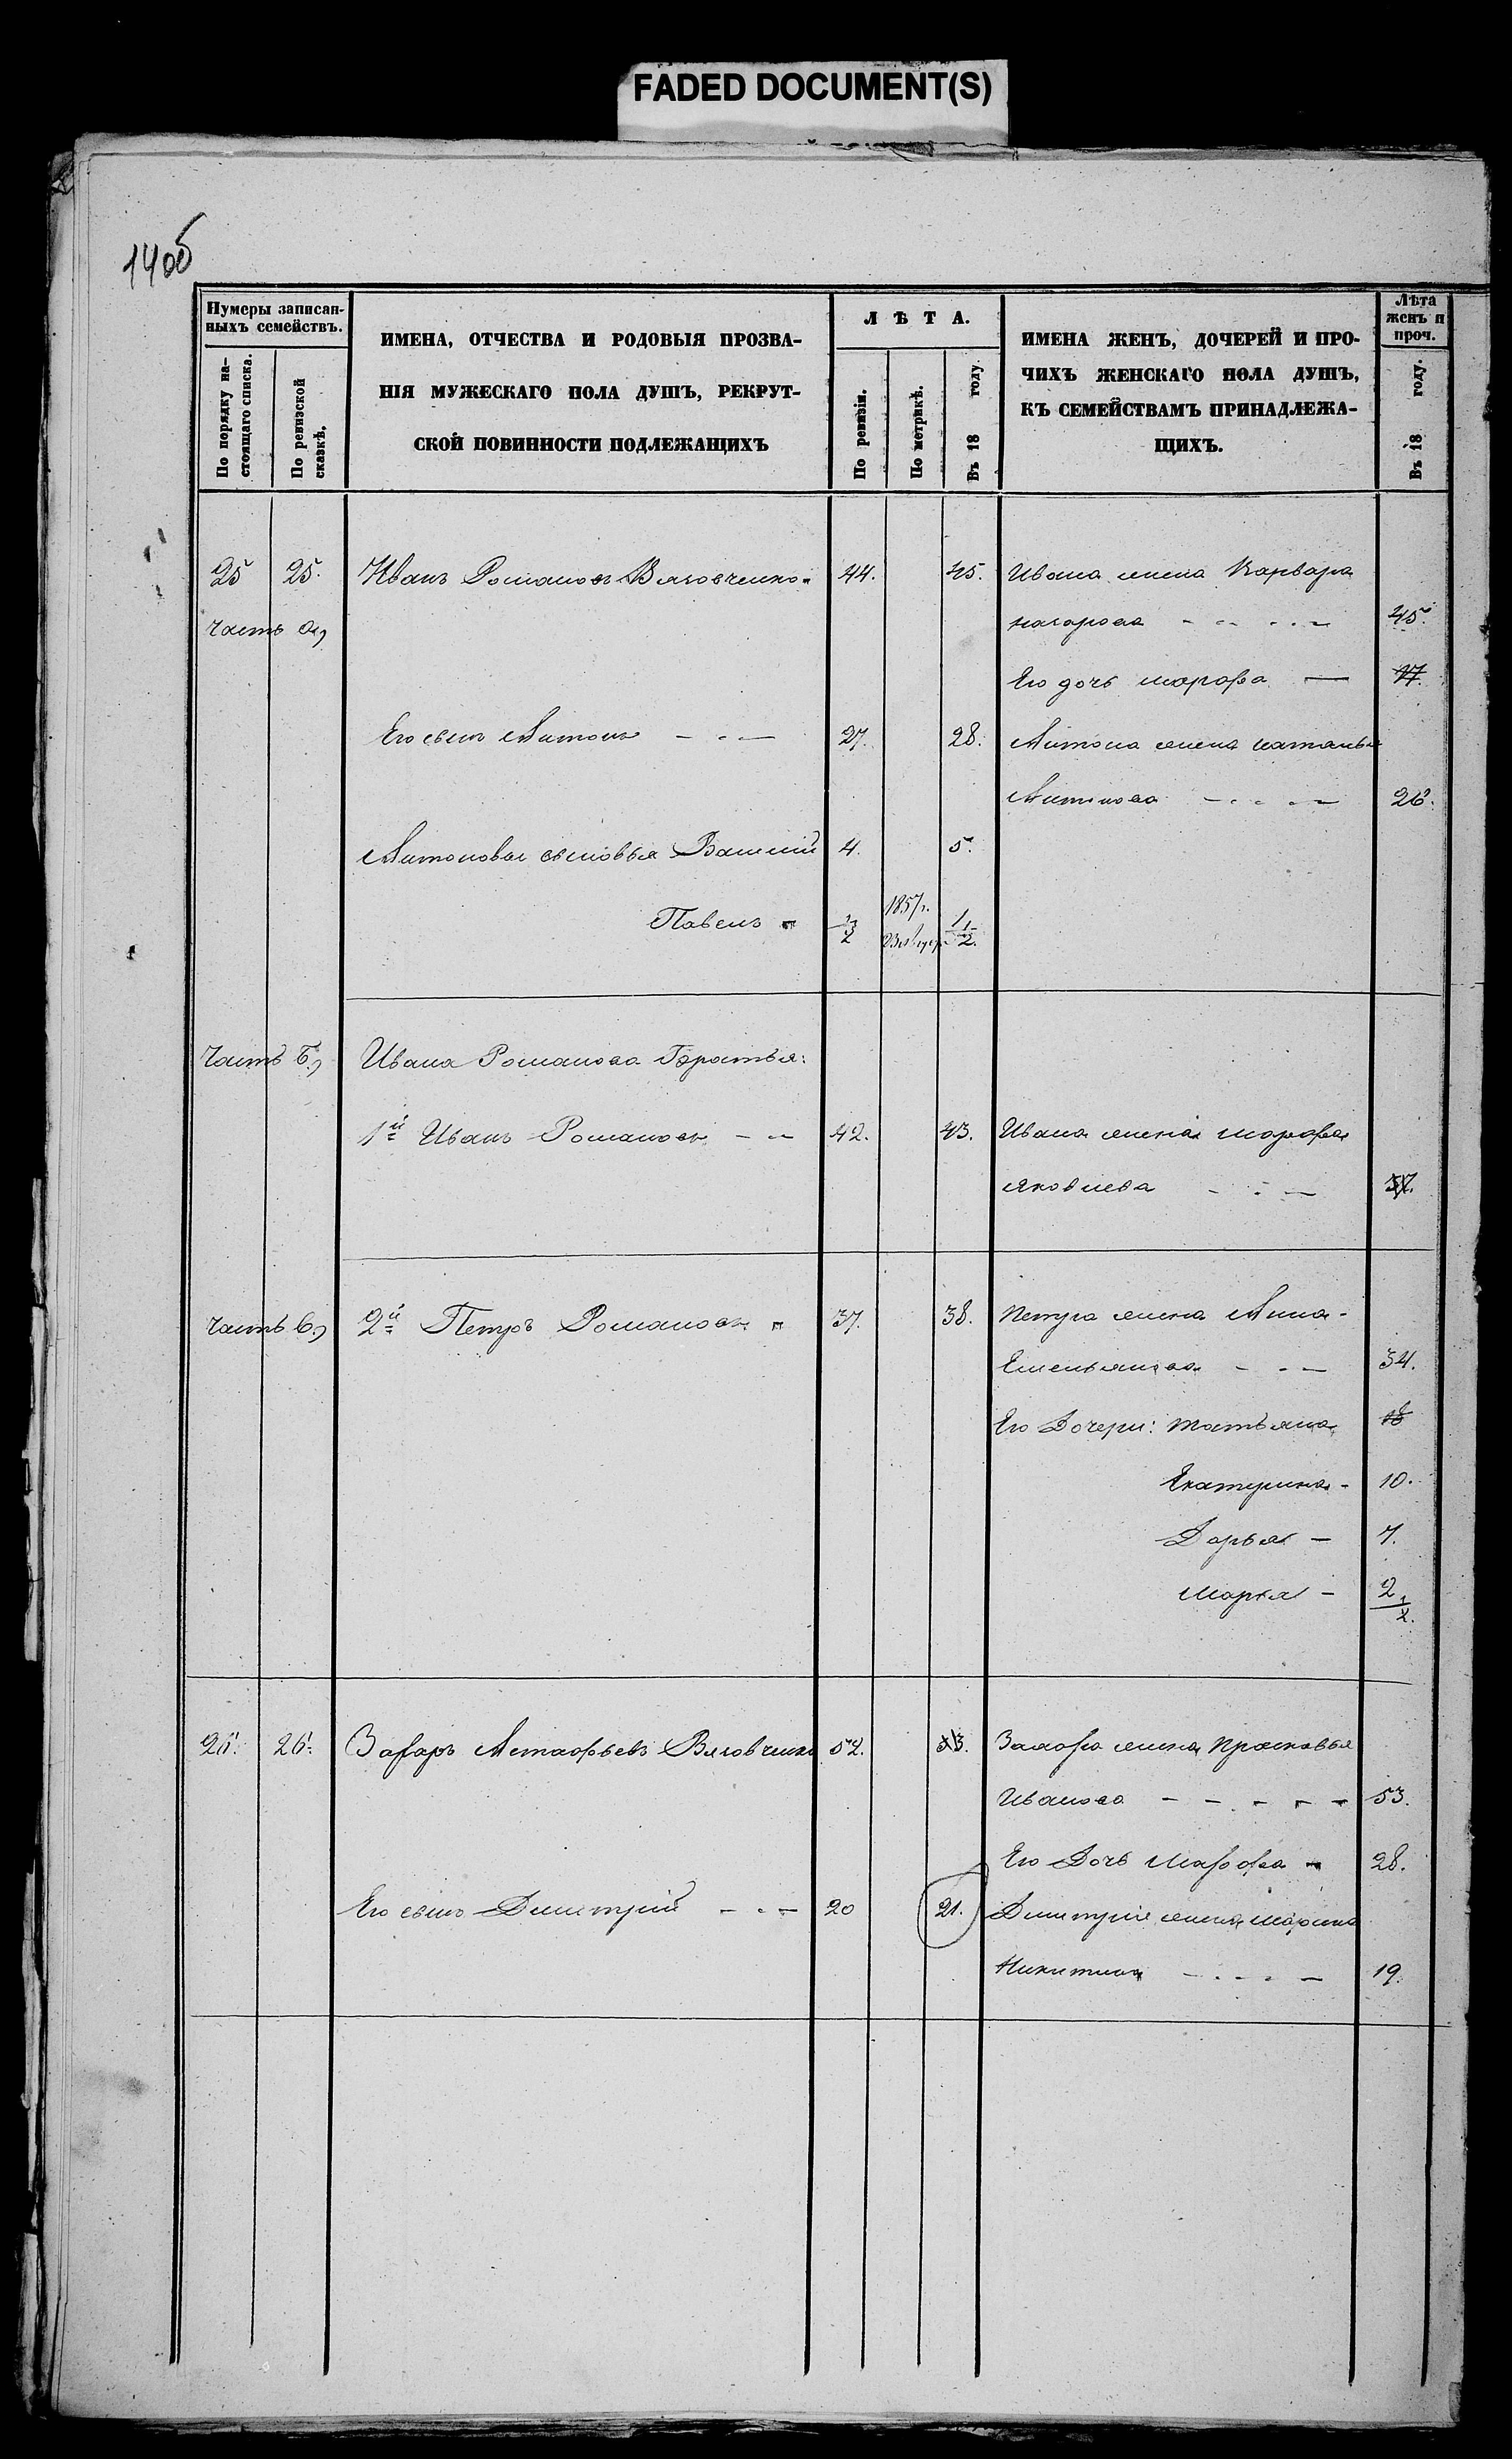 FADED DOCUMENT(S)
14об
Нумеры записан-
ныхъ семействъ.
По порядку на-
стоящаго списка.
По ревизской
сказкѣ.
ИМЕНА, ОТЧЕСТВА И РОДОВЫЯ ПРОЗВА-
НІЯ МУЖЕСКАГО ПОЛА ДУШЪ, РЕКРУТ-
СКОЙ ПОВИННОСТИ ПОДЛЕЖАЩИХЪ
ЛѢТА.
По ревизіи.
По метрикѣ.
Въ 18 году.
ИМЕНА ЖЕНЪ, ДОЧЕРЕЙ И ПРО-
ЧИХЪ ЖЕНСКАГО ПОЛА ДУШЪ,
КЪ СЕМЕЙСТВАМЪ ПРИНАДЛЕЖА-
ЩИХЪ.
Лѣта
женъ п
проч.
Въ 18 году.
25 25. Иванъ Романовъ 44. 45. Ивана жена Варвара
часть а, 45.
Его дочь Марфа — 17.
Его сынъ Антонъ - - — 27. 28. Антона жена Наталья
26.
Антоновы сыновья Василій 4. 5.
Павелъ 1/2 1857г. 1 1/2.
часть б, Ивана Романова Братья:
1й Иванъ Романовъ - - 42. 43. Ивана жена Марфа
Яковлева - - —
часть в, 2й Петръ Романовъ 37. 38. Петра жена Анна -
Емельянова - - — 34.
Его Дочери: Татьяна 18
Екатерина - 10.
Дарья — 7.
Марья - 2 1/2.
26. 26. Захаръ Вяговченко 52. 53. Захара жена Прасковья
Иванова - - - - - 53.
Его Дочь Марфа - 28.
Его сынъ Дмитрій - - - 20 21. Дмитрія жена Марина
Никитина - - - — 19.